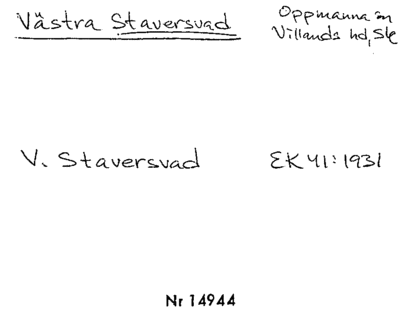 Västra Staversvad
Oppmanna sn
Villands hd, Sk
V. Staversvad
EK 41:1931
Nr 14944